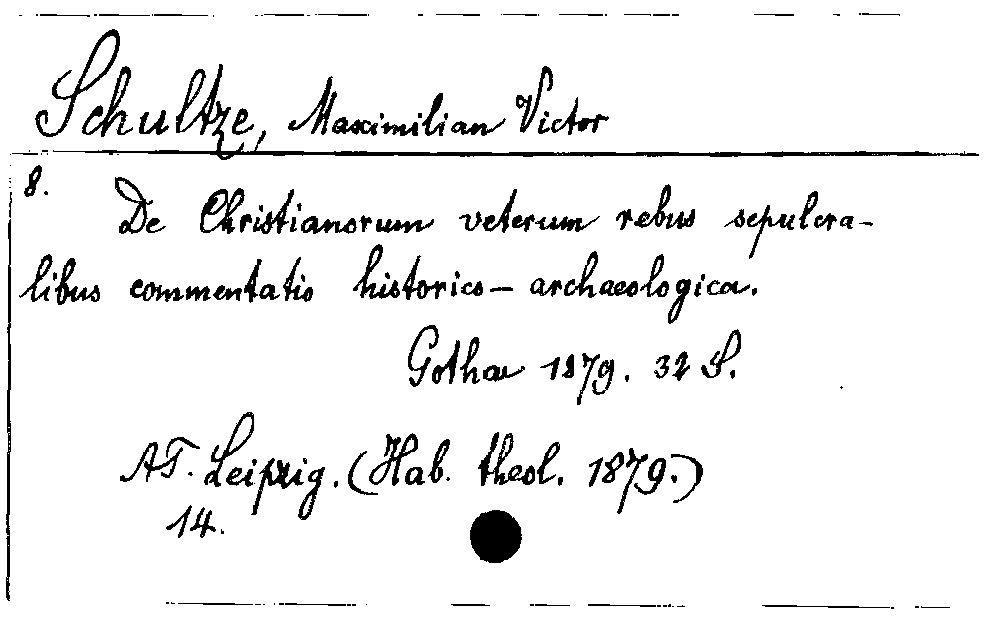 Schultze, Maximilian Victor
8.
De Christianorum veterum rebus sepulcra-
libus commentatio historico-archaeologica.
Gothae 1879. 32 S.
AT. Leipzig. (Hab. theol. 1879.)
14.